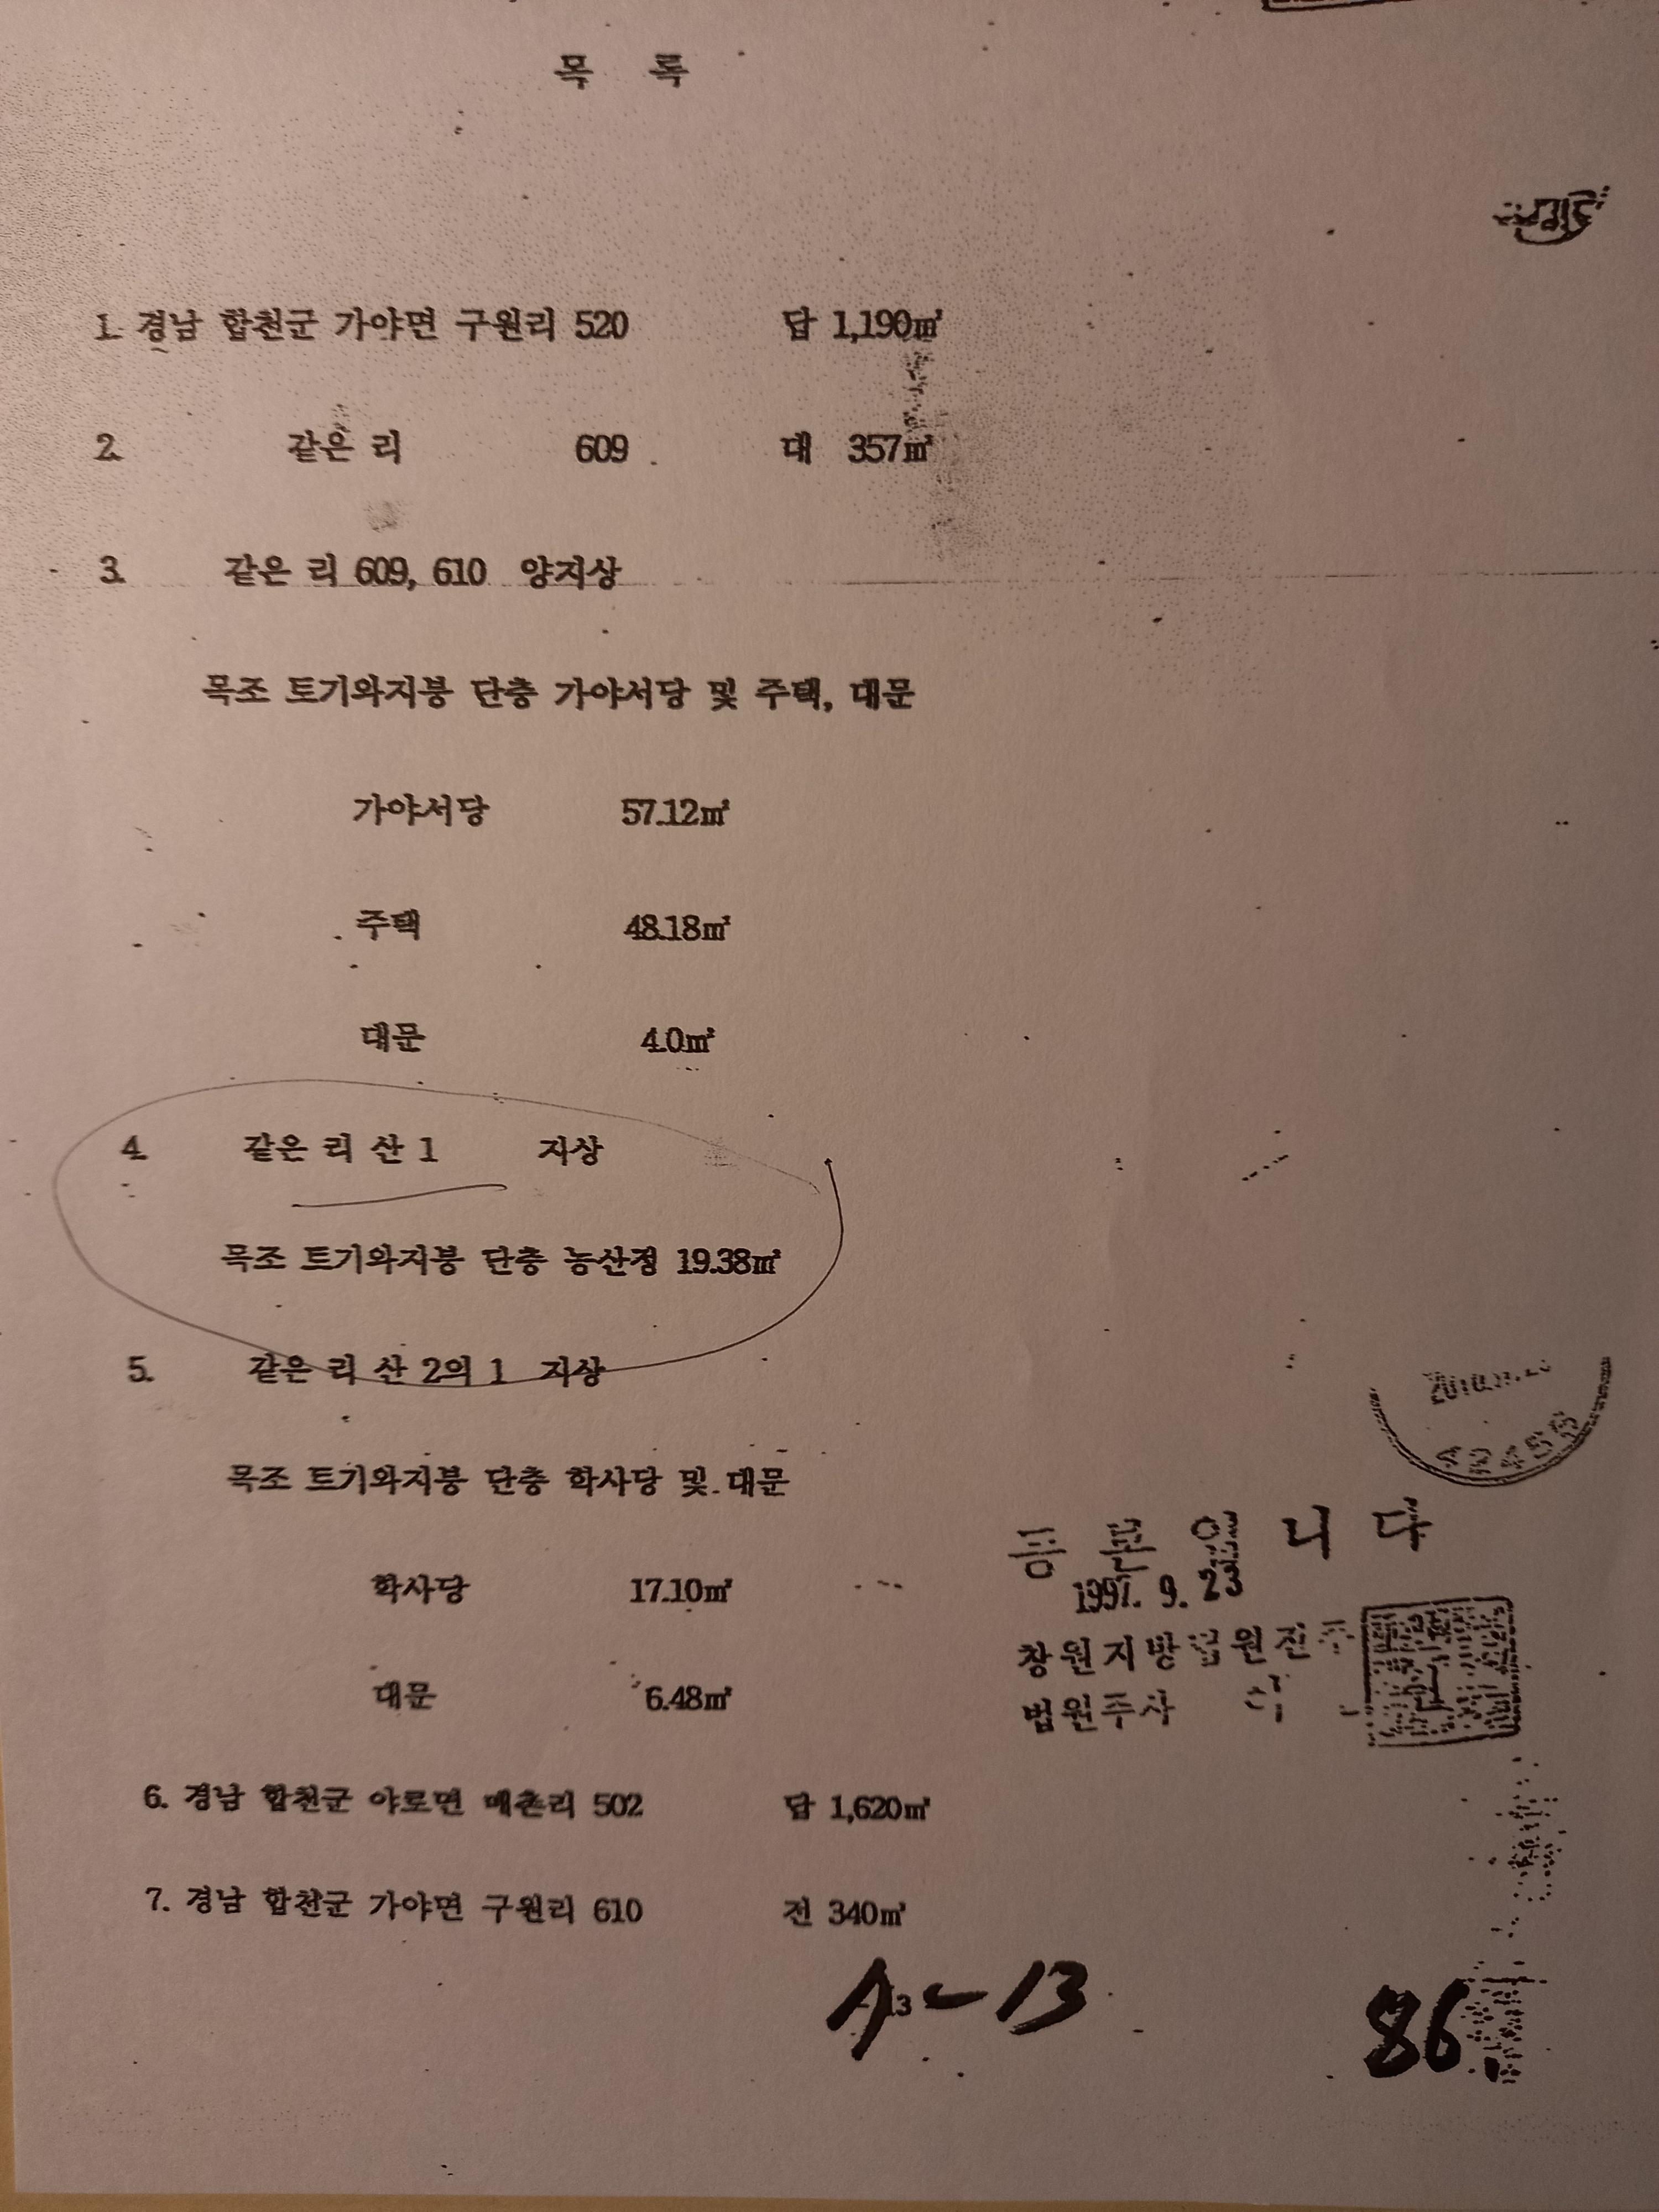 목 록
1. 경남 합천군 가야면 구원리 520 답 1,190㎡
2. 같은 리 609 대 357㎡
3. 같은 리 609, 610 양지상
목조 토기와지붕 단층 가야서당 및 주택, 대문
가야서당 57.12㎡
주택 48.18㎡
대문 4.0㎡
4. 같은 리 산 1 지상
목조 토기와지붕 단층 농산정 19.38㎡
5. 같은 리 산 2의 1 지상
목조 토기와지붕 단층 학사당 및 대문
42455
등본입니다
학사당 17.10㎡
1997. 9. 23
창원지방법원진주
대문 6.48㎡
법원주사
6. 경남 합천군 야로면 매촌리 502 답 1,620㎡
7. 경남 합천군 가야면 구원리 610 전 340㎡
13
86.